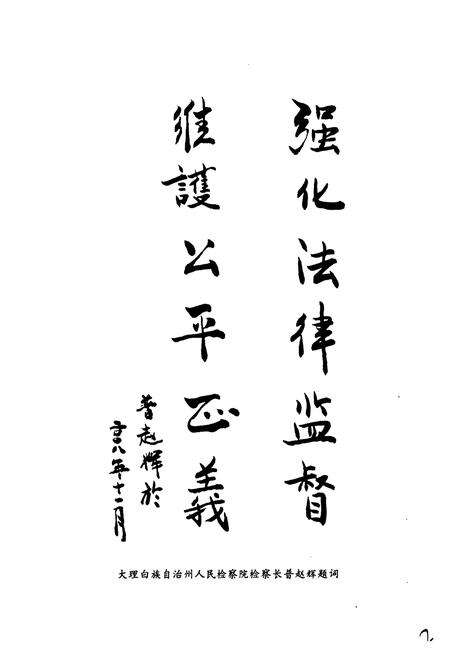 强化法律监督
維護公平正義
普赵輝於
二〇〇八年十一月
大理白族自治州人民检察院检察长普赵辉题词